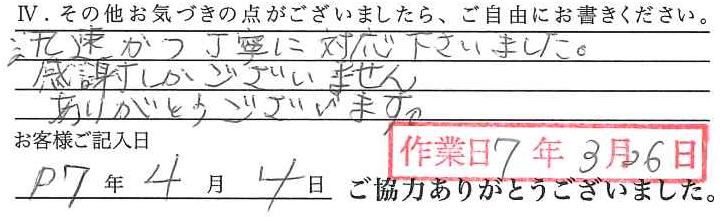 Ⅳ．その他お気づきの点がございましたら、ご自由にお書きください。
迅速かつ丁寧に対応下さいました。
感謝しかございません
ありがとうございます。
お客様ご記入日
作業日7年3月26日
07年4月4日
ご協力ありがとうございました。